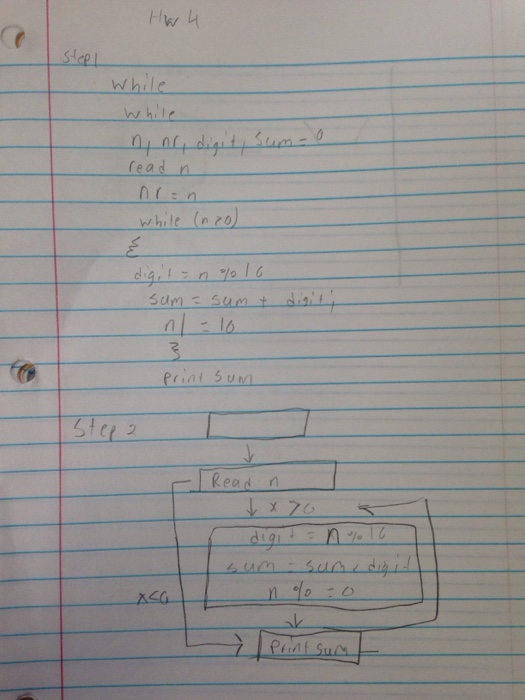 HW 4
Step 1
while
while
n, nr, digit, sum = 0
read n
nr = n
while (n>0)
{
digit = n % 10
sum = sum + digit;
n/ = 10
}
print sum
Step 2
Read n
x >0
digit = n % 10
sum = sum + digit
n % = 0
x<0
Print sum